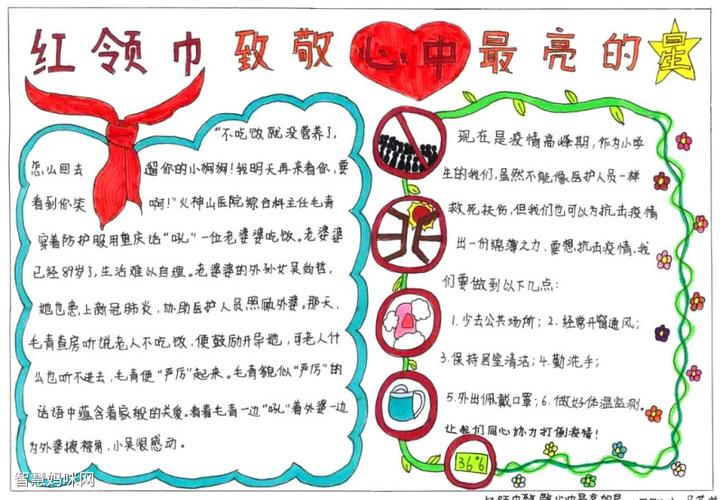 红领巾致敬心中最亮的星
"不吃饭就没营养了,
怎么回去遛你的小狗狗!我明天再来看你,要
看到你笑啊!"火神山医院综合科主任毛青
穿着防护服用重庆话"吼"一位老婆婆吃饭。老婆婆
已经89岁了,生活难以自理。老婆婆的外孙女吴尚哲,
她也患上新冠肺炎,协助医护人员照顾外婆。那天,
毛青查房听说老人不吃饭,便鼓励开导她,可老人什
么也听不进去,毛青便"严厉"起来。毛青貌似"严厉"的
话语中蕴含着家般的关爱。看着毛青一边"吼"着外婆一边
为外婆掖被角,小吴很感动。
现在是疫情高峰期,作为小学
生的我们,虽然不能像医护人员一样
救死扶伤,但我们也可以为抗击疫情
出一份绵薄之力。要想抗击疫情,我
们要做到以下几点:
1.少去公共场所;2.经常开窗通风;
3.保持居室清洁;4.勤洗手;
5.外出佩戴口罩;6.做好体温监测。
让我们同心协力打倒疫情!
36°6
智慧妈咪网